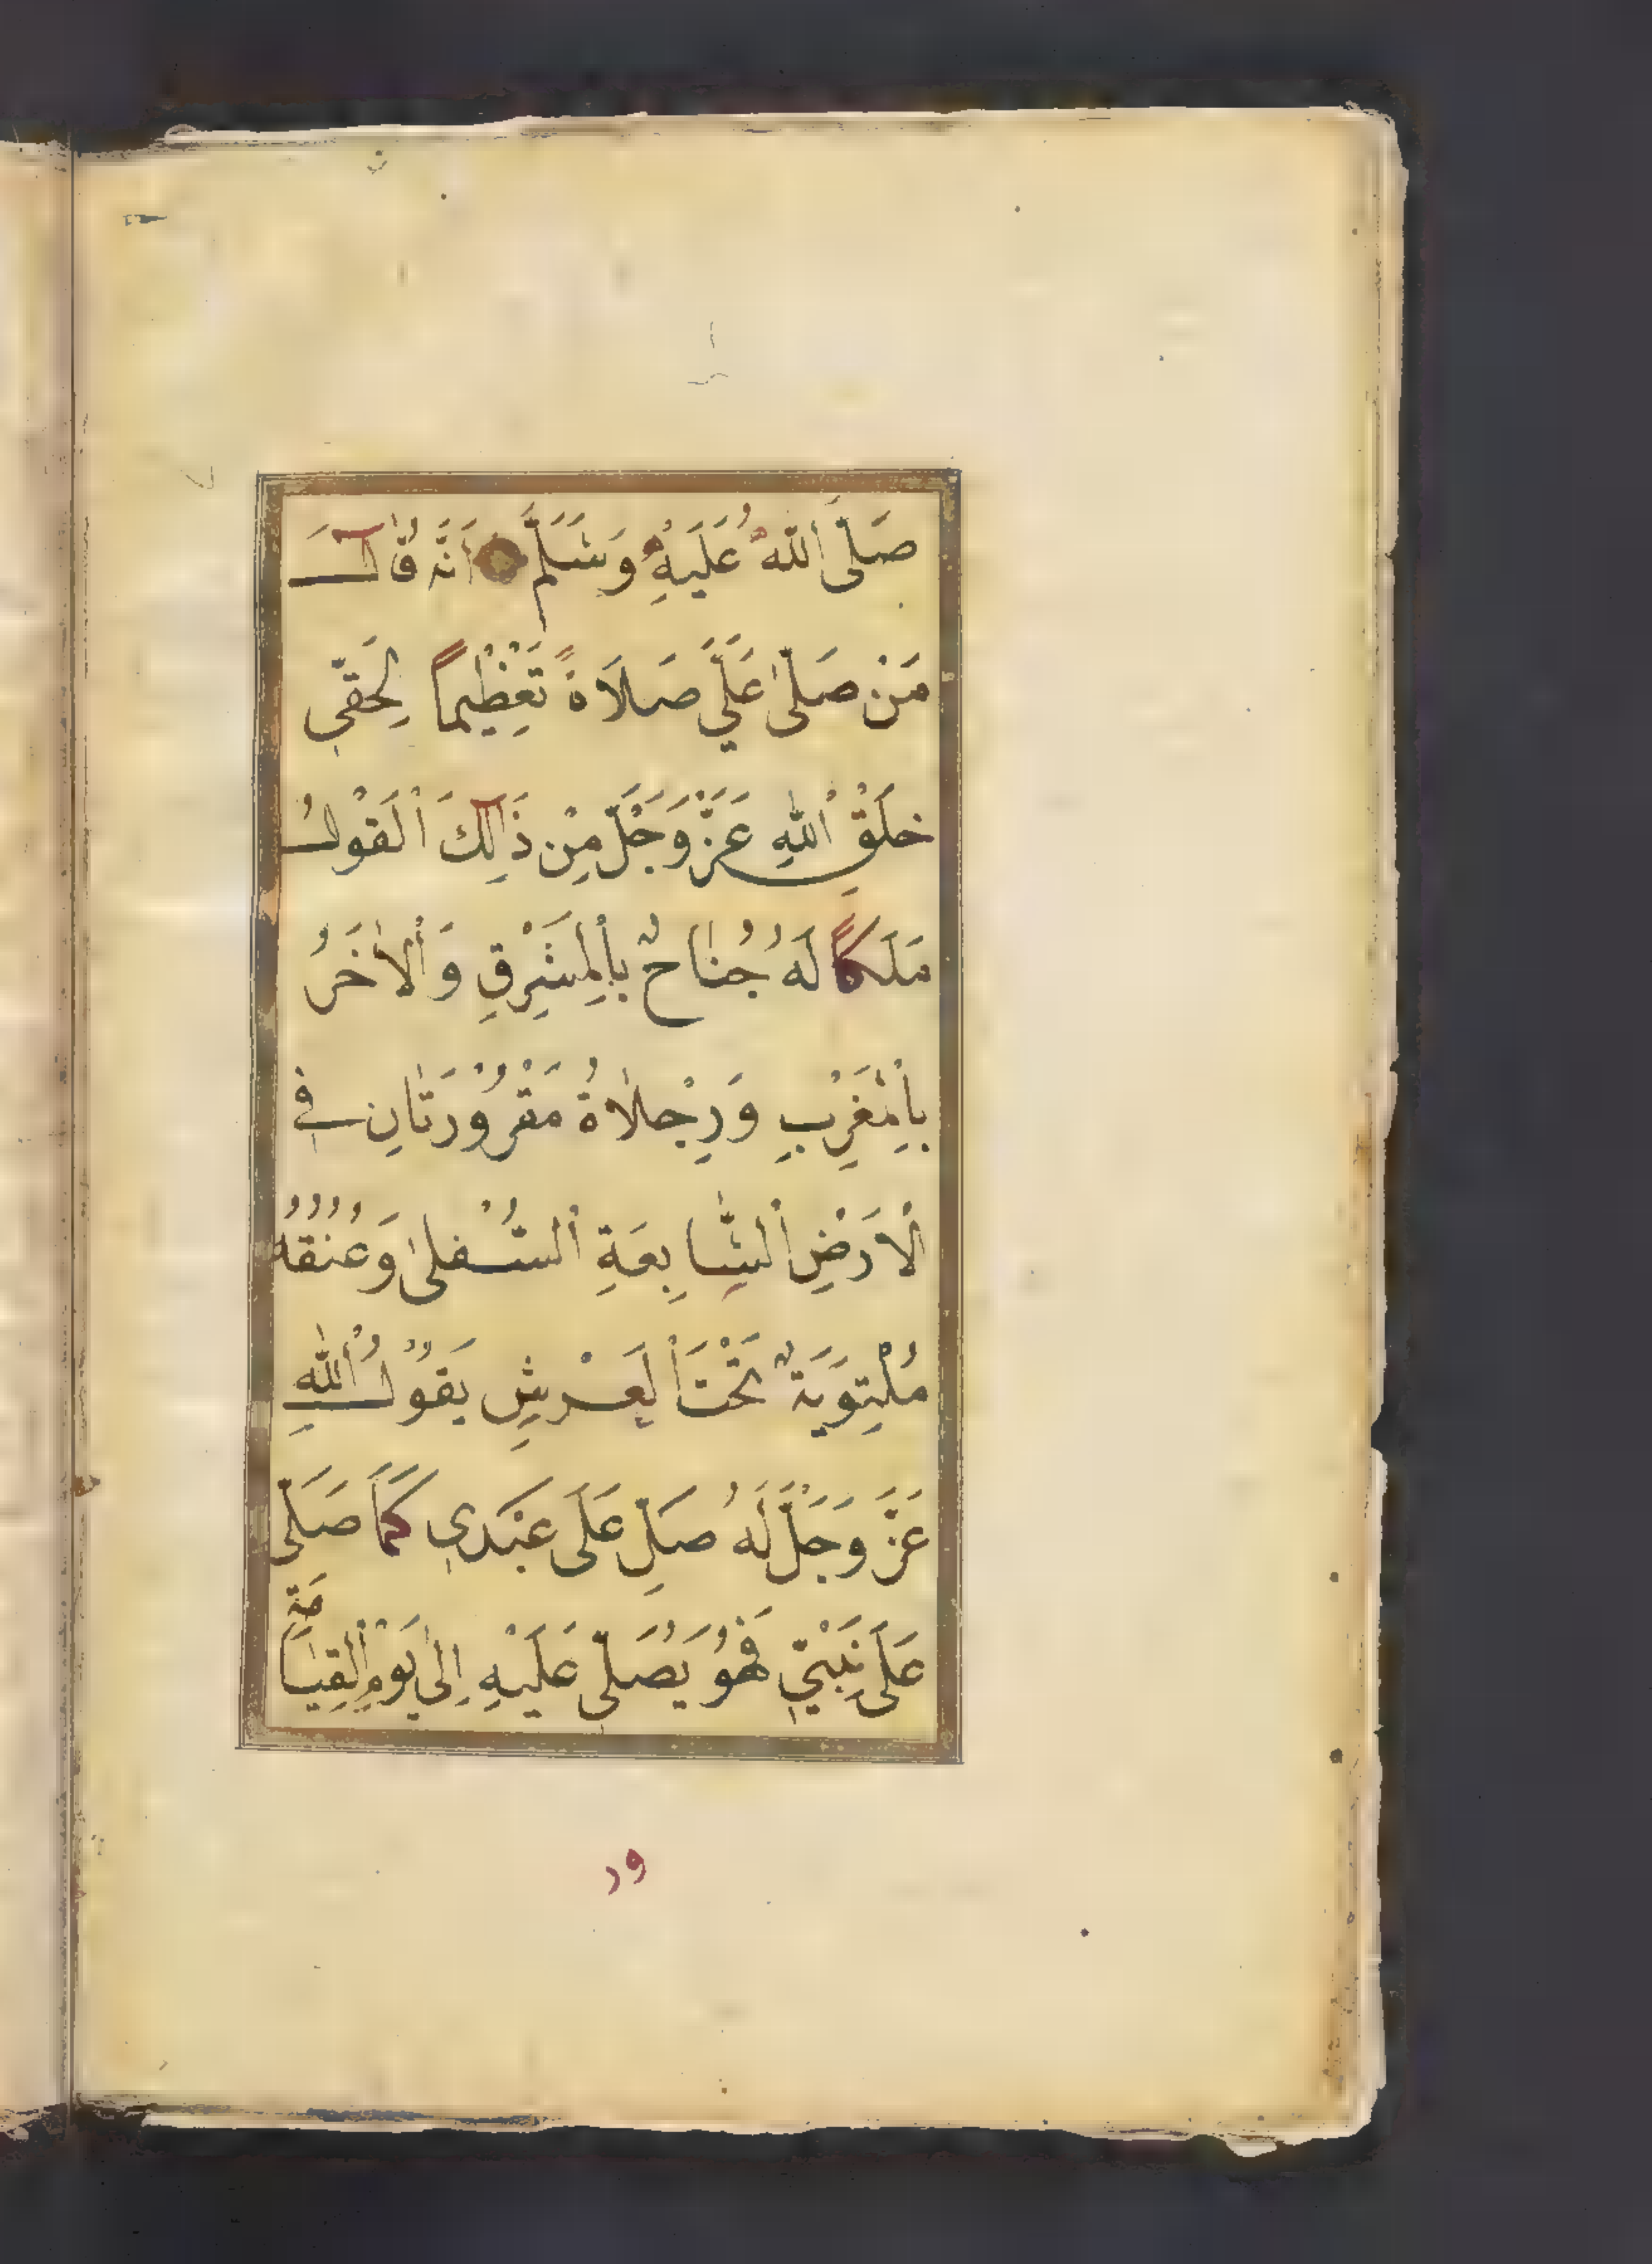 صَلَّى اللهُ عَلَيْهِ وَسَلَّمَ اَنَّهُ قَالَ
مَنْ صَلّىٰ عَلَيَّ صَلَاةً تَعْظِيماً لِحَقّيِ
خلَقَ اْللهِ عَزَّ وَجَلَّ مِنْ ذَالِكَ اْلقَوْلُ
مَلَكاً لَهُ جُنَاحٌ بِاْلمَشْرِقِ وَاْلاٰخَرُ
بِاْلمَغْرِبِ وَرِجْلاٰهُ مَقْرُوْرَتَانِ فيِ
اْلاَرَضِ اْلسَّابِعَةِ اْلسُّفلىٰ وَعُنُقُهُ
مُلْتِوَيَةٌ تَحْتَ اْلعَرْشِ يَقُوْلُ اْللهِ
عَزَّ وَجَلَّ لَهُ صَلِّ عَلَى عَبْدِي كَمَا صَلَّى
عَلَى نَبِيّيِ فَهُوَ يُصَلّىِ عَلَيْهِ اِلىٰ يَوْمِ اْلقِيَامَةِ